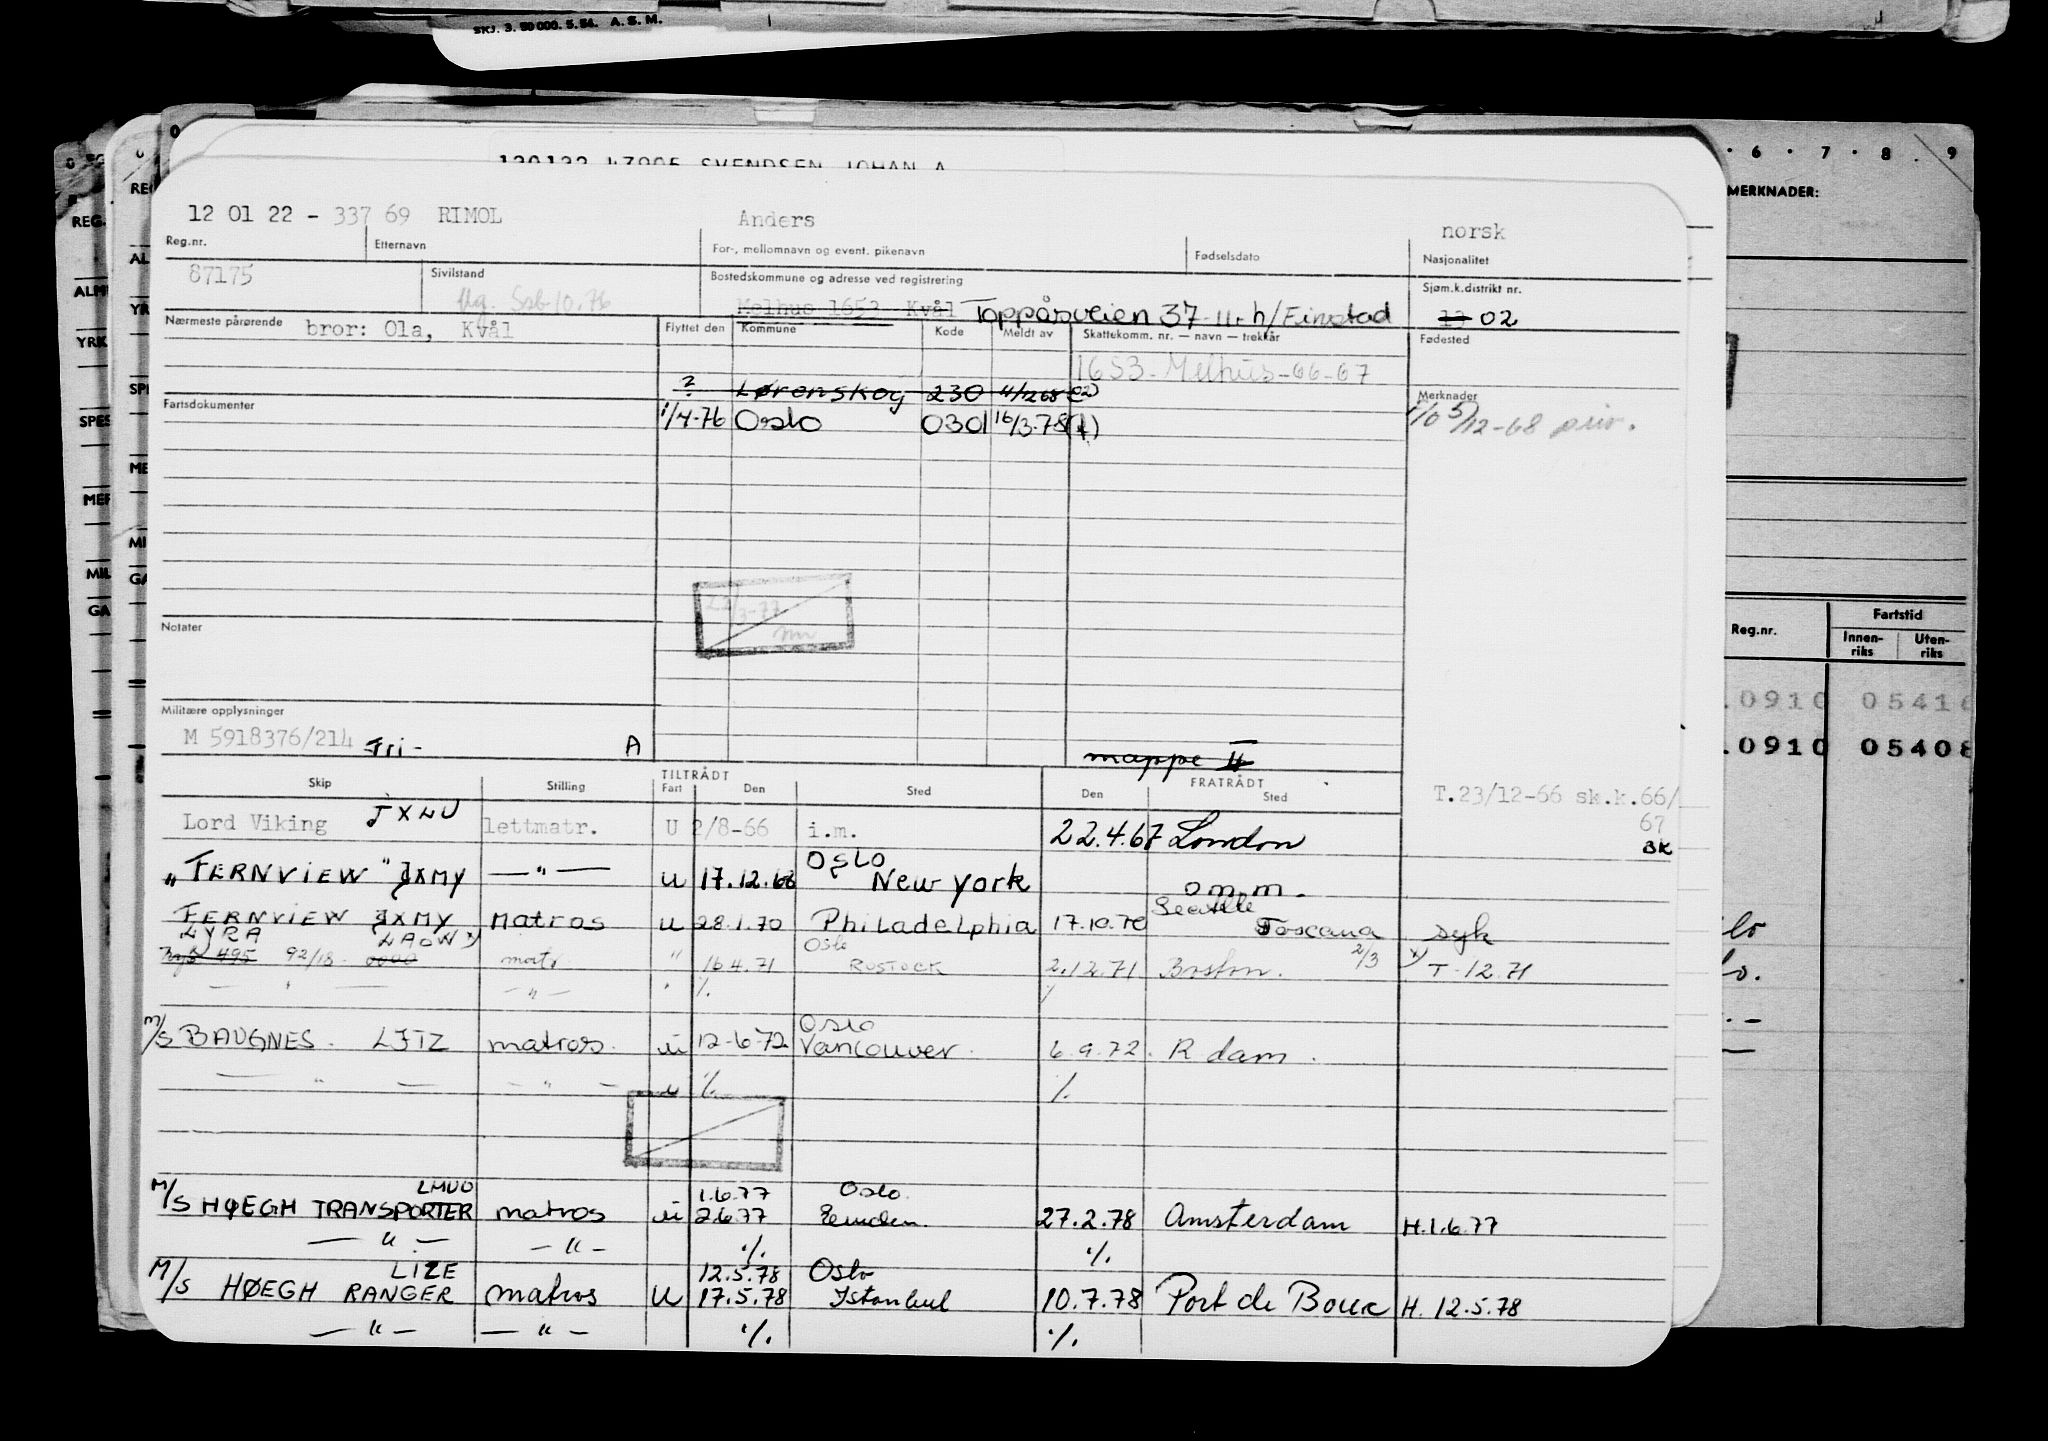 SKJ. 3. 50 000. 5. 54. A. S. M.
6 · 7 · 8 . 9
MERKNADER:
120122 47905 SVENDSEN JOHAN A
12 01 22 - 337 69 RIMOL Anders norsk
Reg.nr. Etternavn For-, mellomnavn og event. pikenavn Fødselsdato Nasjonalitet
87175 Sivilstand Bostedskommune og adresse ved registrering Sjøm.k.distrikt nr.
Melhus 1653 Kvål Toppåsveien 37 - II - h/Einstad 02
Nærmeste pårørende bror: Ola, Kvål Flyttet den Kommune Kode Meldt av Skattekomm. nr. — navn — trekkår Fødested
1653 - Melhus - 66 - 67
? Lørenskog 230 Merknader
Fartsdokumenter 1/4-76 Oslo 0301 16/3-78 5/12-68 priv.
22/3-77
Notater
Militære opplysninger
M 5918376/214 Fri - A mappe II
Skip Stilling TILTRÅDT Fart Den Sted FRATRÅDT Den Sted
T.23/12-66 sk.k.66/
67
BK
Lord Viking JXLU lettmatr. U 2/8-66 i.m. 22.4.67 London
Oslo
"FERNVIEW" JXMY — " — u 17.12.68 New York o m m.
Seattle
FERNVIEW JXMY Matros u 28.1.70 Philadelphia 17.10.70 Toscana Syk
LYRA LAOW x) Oslo
495 92/18 0000 matr " 16 4.71 ROSTOCK 2.12.71 Boston. 2/3 x) T - 12.71
— " — — " — " %
Oslo
M/S BAUGNES. LJIZ matros. u 12-6-72 Vancouver. 6.9.72. R dam.
— " — — " — u % %
LMUO 1.6.77 Oslo.
M/S HØEGH TRANSPORTER matros u 2.6.77 Emden. 27.2.78 Amsterdam H.1.6.77
— " — — " — % %
LIZE 12.5.78 Oslo
M/S HØEGH RANGER matros u 17.5.78 Istanbul 10.7.78 Port de Bouc H. 12.5.78
— " — — " — % %
Reg.nr. Fartstid
Innen-riks Uten-riks
.0910 05416
.0910 05408